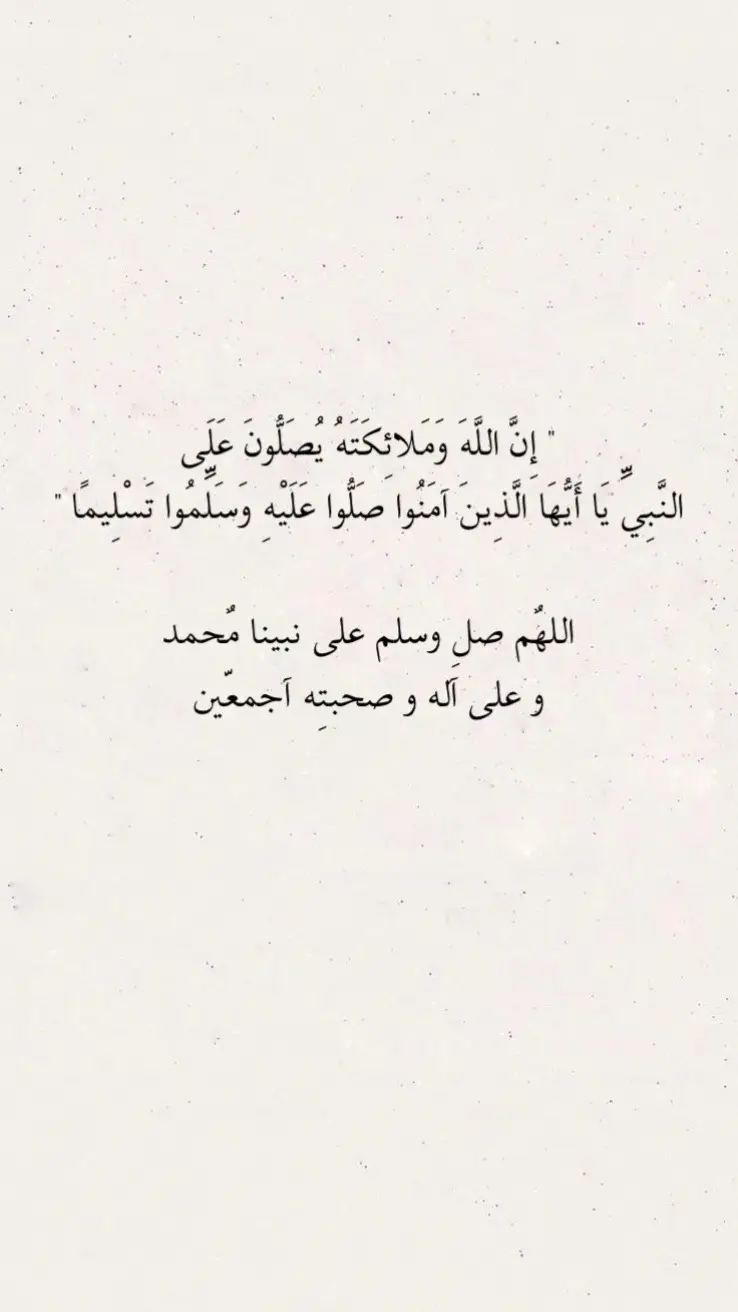 " إِنَّ اللَّهَ وَمَلائِكَتَهُ يُصَلُّونَ عَلَى
النَّبِيِّ يَا أَيُّهَا الَّذِينَ آمَنُوا صَلُّوا عَلَيْهِ وَسَلِّمُوا تَسْلِيمًا "
اللهٌم صلِ وسلم على نبينا مٌحمد
و على آله و صحبتِه آجمعّين